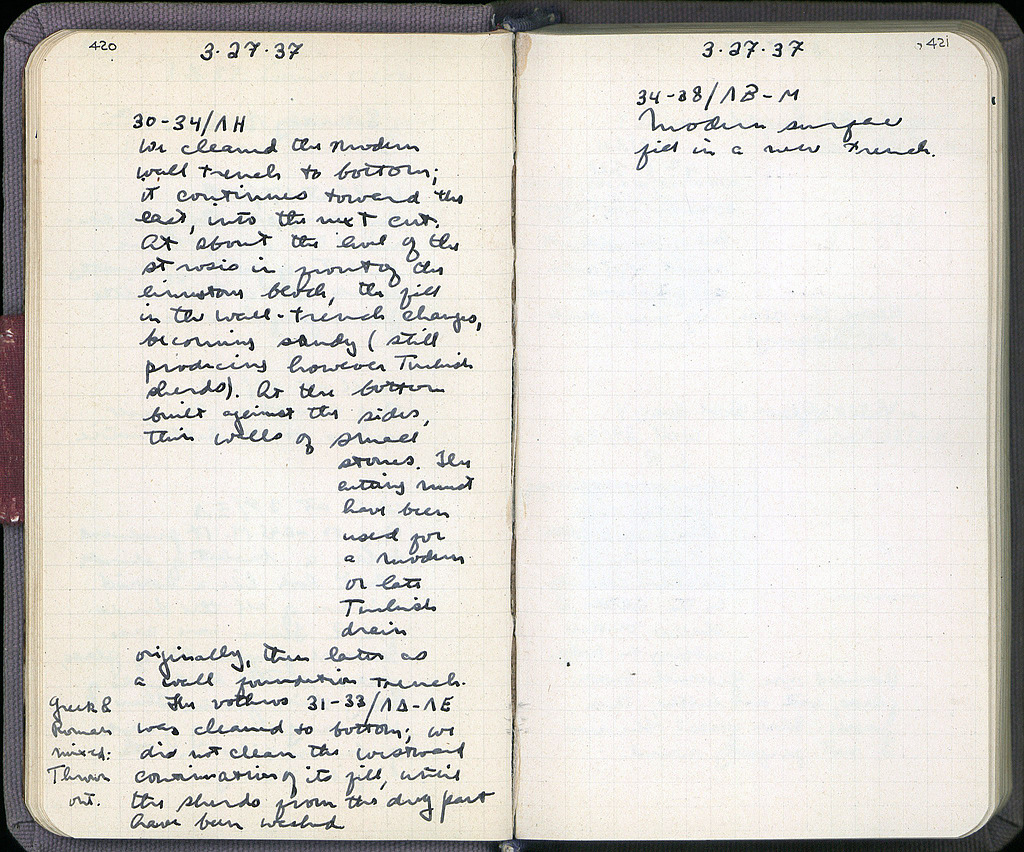 420
3·27·37
30-34/ΛH
We cleaned the modern
wall trench to bottom;
it continues toward the
east, into the next cut.
At about the level of the
strosis in front of the
limestone block, the fill
in the wall-trench changes,
becoming sandy (still
producing however Turkish
sherds). At the bottom
built against the sides,
thin walls of small
stones. The
cutting must
have been
used for
a modern
or late
Turkish
drain
originally, then later as
a wall foundation trench.
The vothros 31-33/ΛΔ-ΛE
was cleaned to bottom; we
did not clean the westward
continuation of its fill, until
the sherds from the dug part
have been washed
Greek &
Roman
mixed:
Thrown
out.
421
3·27·37
34-38/ΛB-M
Modern surface
fill in a new trench.